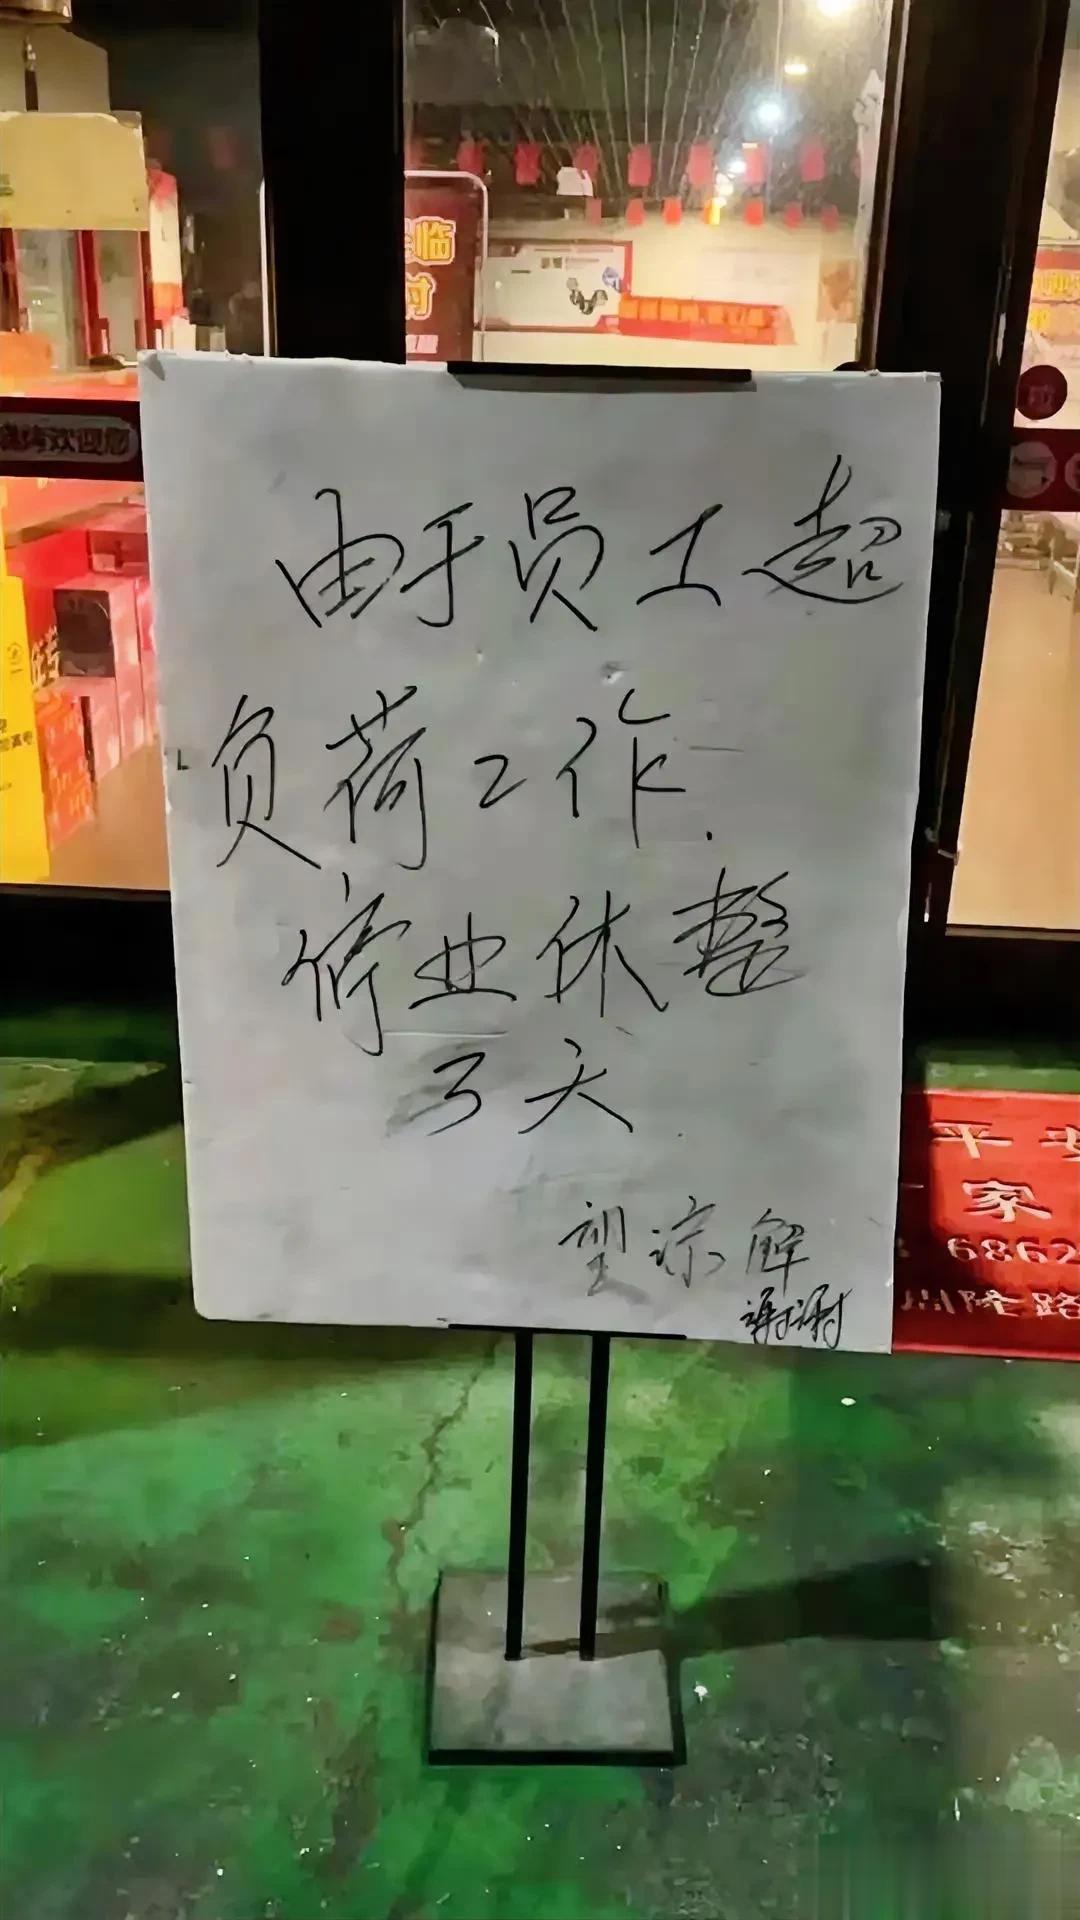 由于员工超
负荷工作.
停业休整
3天.
望谅解
谢谢
临
欢迎您
平安
家
6862
昌隆路